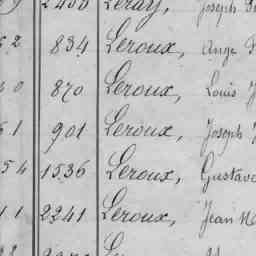 9 2400 Leray, Joseph
52 834 Leroux, Ange
40 870 Leroux, Louis
51 901 Leroux, Joseph
54 1536 Leroux, Gustave
11 2241 Leroux, Jean